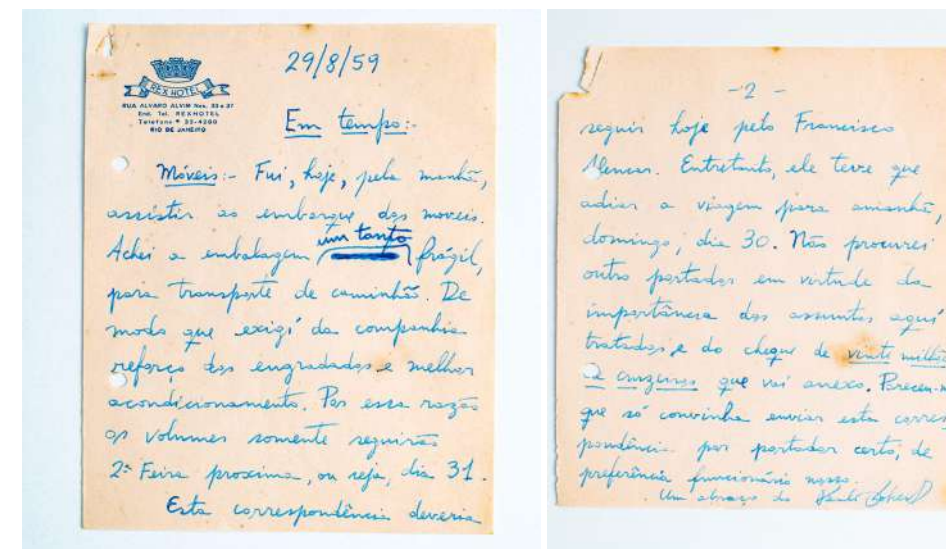 REX HOTEL
RUA ALVARO ALVIM Nos. 33 e 37
End. Tel. REXHOTEL
Telefone * 22-4280
RIO DE JANEIRO
29/8/59
Em tempo:-
Móveis:- Fui, hoje, pela manhã,
assistir ao embarque dos moveis.
Achei a embalagem um tanto frágil,
para transporte de caminhão. De
modo que exigi da companhia
reforço dos engradados e melhor
acondicionamento. Por essa razão
os volumes somente seguirão
2ª Feira proxima, ou seja, dia 31.
Esta correspondência deveria
-2-
seguir hoje pelo Francisco
Alencar. Entretanto, ele teve que
adiar a viagem para amanhã,
domingo, dia 30. Não procurei
outro portador em virtude da
importância dos assuntos aqui
tratados, e do cheque de vinte milhões
de cruzeiros que vai anexo. Pareceu-m
que só convinha enviar esta corres
pondência por portador certo, de
preferência funcionário nosso.
Um abraço do